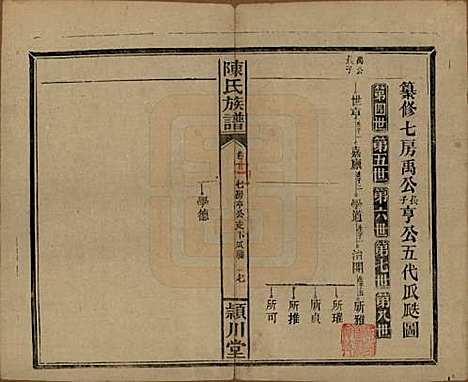 纂修七房禹公長子亨公五代瓜瓞圖
第四世 第五世 第六世 第七世 第八世
禹公長子
世亨 嘉應 學道 治開 所雅
所璀
所貞
所推
所可
陳氏族譜
七房亨公支下瓜瓞
潁川堂
學德